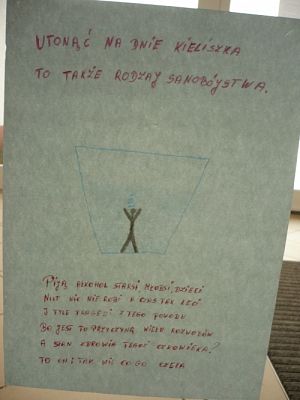 UTONĄĆ NA DNIE KIELISZKA
TO TAKŻE RODZAJ SAMOBÓJSTWA.
PIJĄ ALKOHOL STARSI, MŁODSI, DZIECI
NIKT NIC NIE ROBI A CZAS TAK LECI
I TYLE TRAGEDI Z TEGO POWODU
BO JEST TO PRZYCZYNĄ WIELU ROZWODÓW
A STAN ZDROWIA TRACI CZŁOWIEKA?
TO ON I TAK WIE CO GO CZEKA